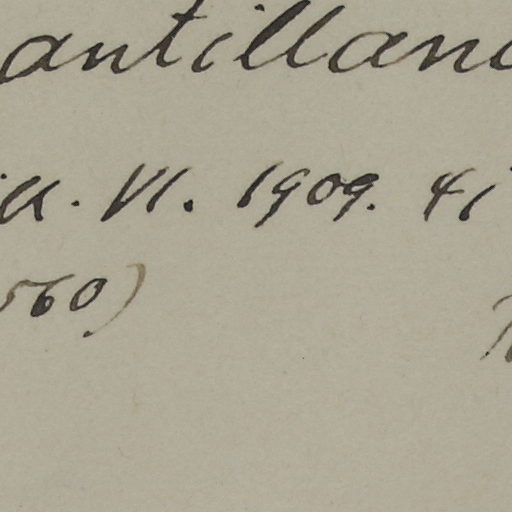 antillan
ill. VI. 1909. 41
560)